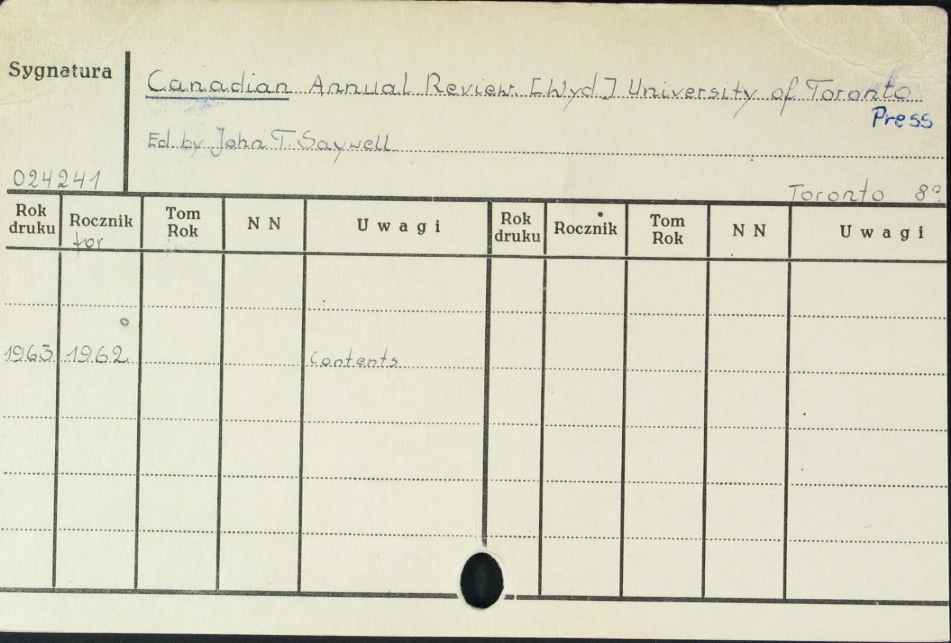 Sygnatura
Canadian Annual Review [Wyd] University of Toronto
Press
Ed. by John T. Saywell
024241
Toronto 8°
Rok druku Rocznik Tom Rok N N Uwagi Rok druku Rocznik Tom Rok N N Uwagi
for
1963 1962 Contents